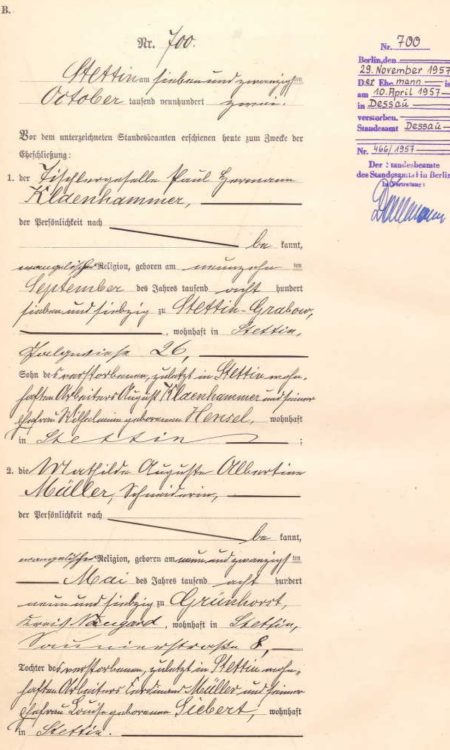 B.
Nr. 700.
Stettin am siebenundzwanzigsten
October tausend neunhundert zwei.
Vor dem unterzeichneten Standesbeamten erschienen heute zum Zwecke der
Eheschließung:
1. der Tischlergeselle Paul Hermann
Kladenhammer,
der Persönlichkeit nach
be kannt,
evangelischer Religion, geboren am neunzehn ten
September des Jahres tausend acht hundert
siebenundsiebzig zu Stettin-Grabow,
, wohnhaft in Stettin,
26,
Sohn des verstorbenen, zuletzt in Stettin wohn-
haften Arbeiters August Kladenhammer und seiner
Ehefrau Wilhelmine geborenen Hensel, wohnhaft
in Stettin ;
2. die Mathilde Auguste Albertine
Müller, Schneiderin,
der Persönlichkeit nach
be kannt,
evangelischer Religion, geboren am neunundzwanzigsten
Mai des Jahres tausend acht hundert
neunundsiebzig zu Grünhorst,
Kreis Naugard, wohnhaft in Stettin,
Saunierstraße 8,
Tochter des verstorbenen, zuletzt in Stettin wohn-
haften Arbeiters Ferdinand Müller und seiner
Ehefrau Louise geborenen Siebert, wohnhaft
in Stettin.
Nr. 700
Berlin, den
29. November 1957
Der Ehemann ist
am 10. April 1957
in Dessau
verstorben.
Standesamt Dessau
Nr. 466/1957
Der Standesbeamte
des Standesamts I in Berlin
In Vertretung: